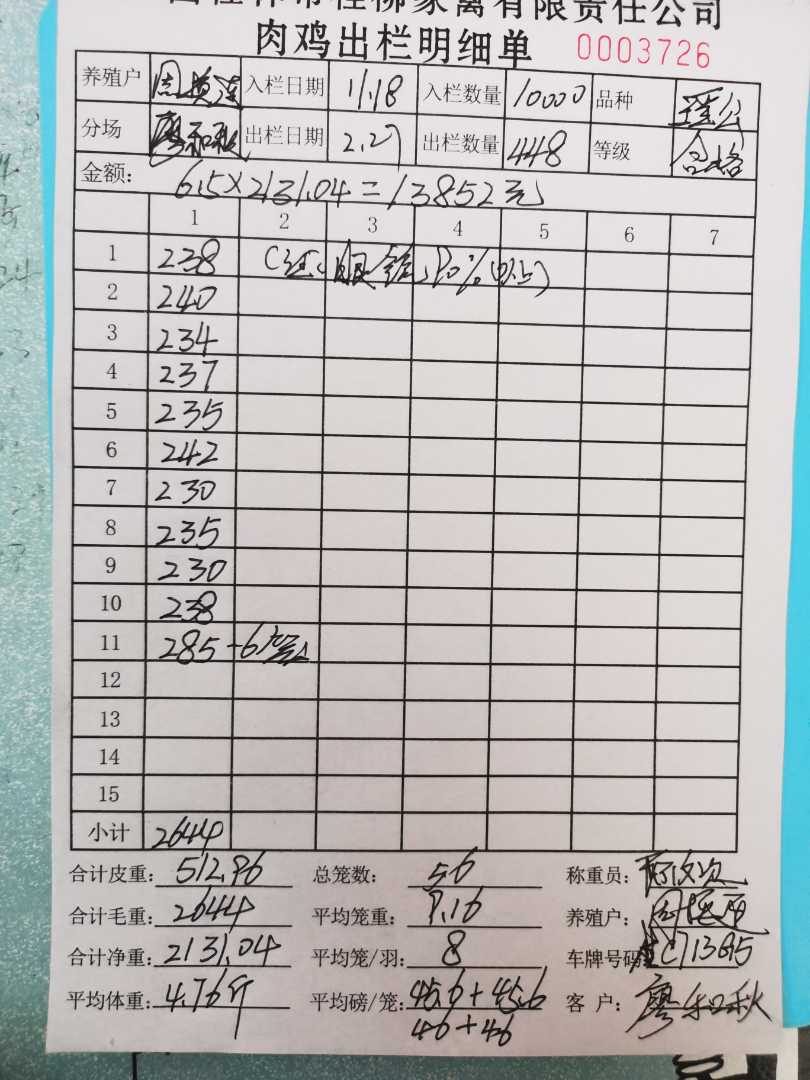 桂柳家禽有限责任公司
肉鸡出栏明细单 0003726
养殖户 入栏日期 11.18 入栏数量 10000 品种
分场 廖和秋 出栏日期 2.27 出栏数量 448 等级 合格
金额: 6.5×2131.04=13852元
1 2 3 4 5 6 7
1 238
2 240
3 234
4 237
5 235
6 242
7 230
8 235
9 230
10 238
11 285-6笼
12
13
14
15
小计 2644
合计皮重: 512.96 总笼数: 56 称重员:
合计毛重: 2644 平均笼重: 9.16 养殖户:
合计净重: 2131.04 平均笼/羽: 8 车牌号码
平均体重: 4.76斤 平均磅/笼: 45.6+45.6 客户: 廖和秋
46+46